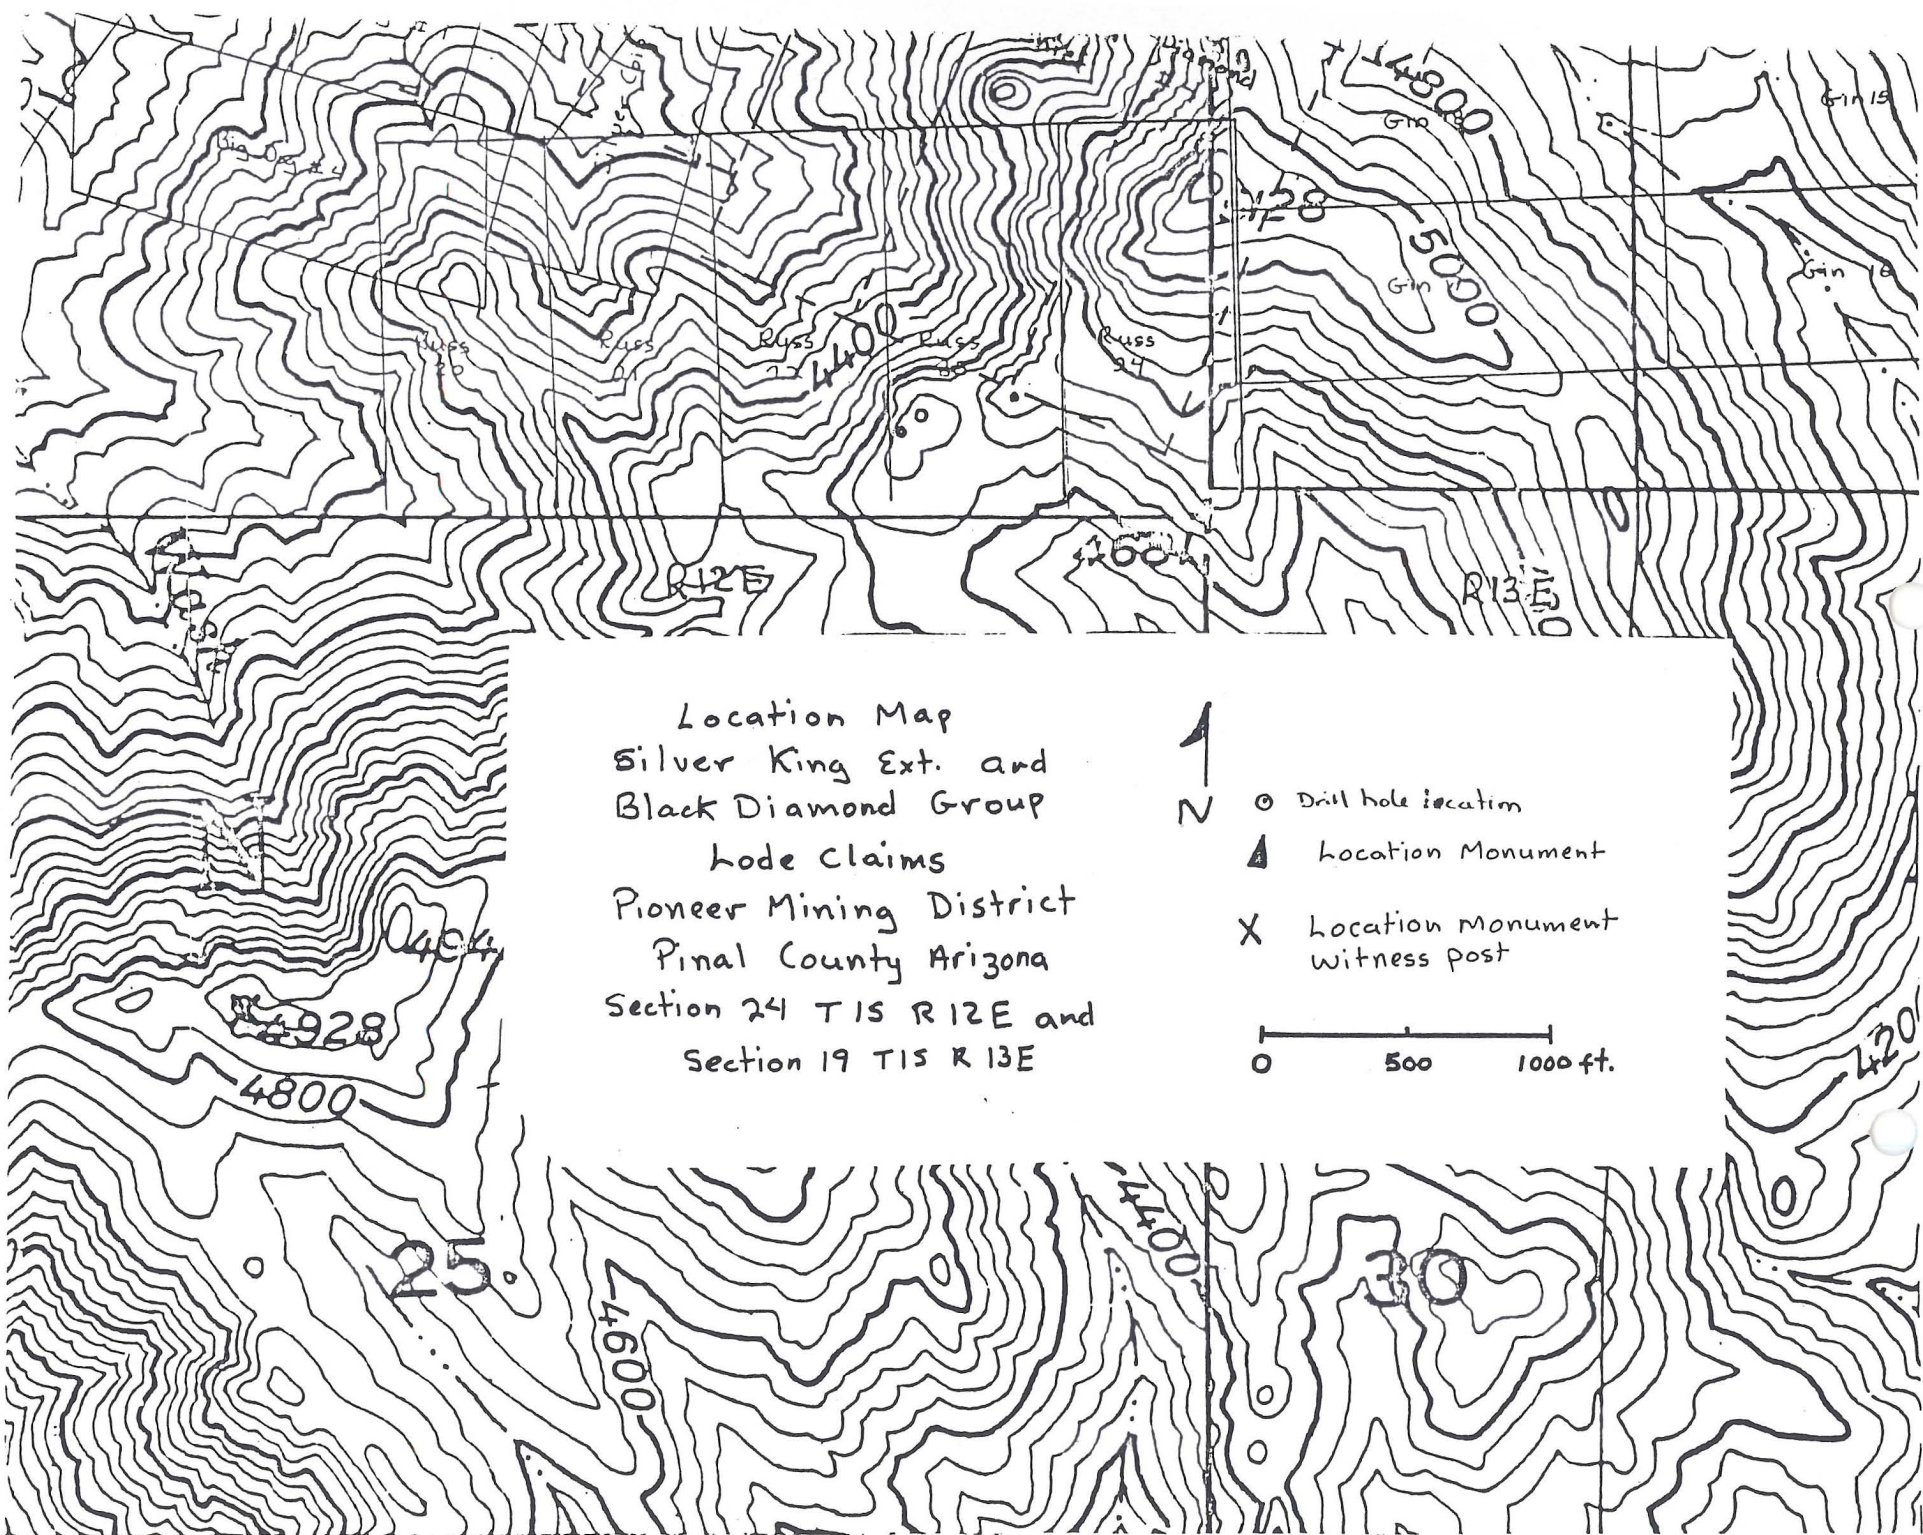 4800
Gin 15
Gin
Big Dog #4
5000
Gin
Gin 16
Russ
20
Russ
Russ
4400
Russ
Russ
24
R12E
R13E
Location Map
Silver King Ext. and
Black Diamond Group
Lode Claims
Pioneer Mining District
Pinal County Arizona
Section 24 T1S R12E and
Section 19 T1S R 13E
N
Drill hole location
Location Monument
X Location Monument
witness post
0 500 1000 ft.
4928
4800
4400
25
30
4600